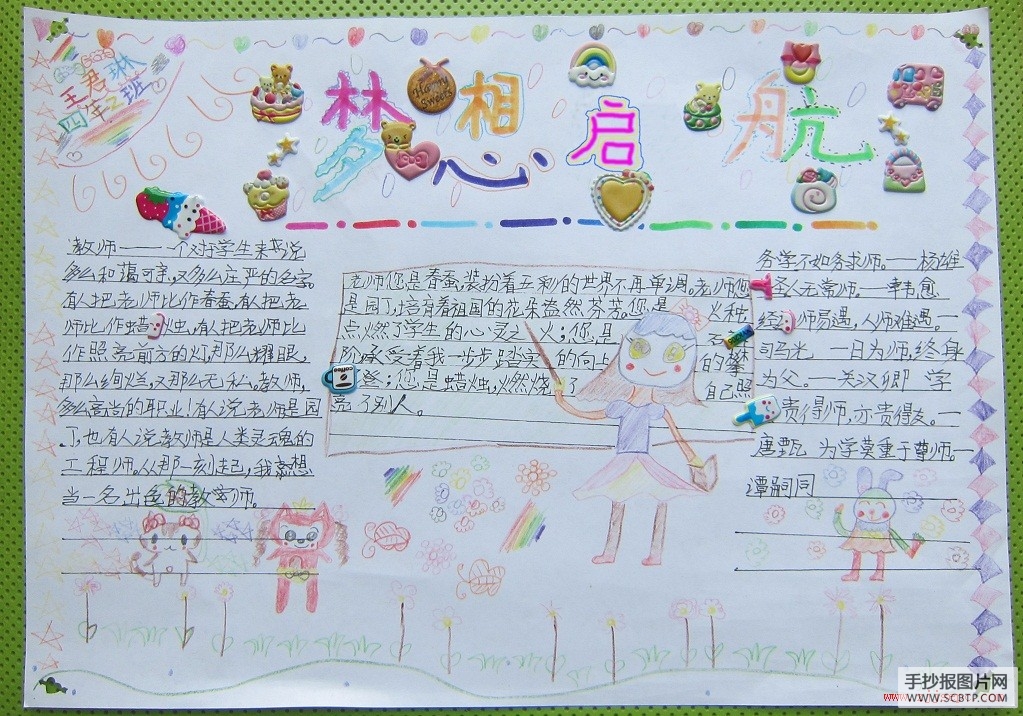 王君琳
四年2班
梦想启航
Happy
sweets
教师——一个对于学生来说
多么和蔼可亲,又多么庄严的名字。
有人把老师比作春蚕,有人把老
师比作蜡烛,有人把老师比
作照亮前方的灯,那么耀眼,
那么绚烂,又那么无私。教师,
多么高尚的职业!有人说老师是园
丁,也有人说教师是人类灵魂的
工程师。从那一刻起,我就想
当一名出色的教师。
老师您是春蚕,装扮着五彩的世界不再单调。老师您
是园丁,培育着祖国的花朵盎然芬芳。您是火种
点燃了学生的心灵之火;您是石
阶,承受着我一步步踏实的向上的攀
登;您是蜡烛,燃烧了自己照
亮了别人。
coffee
务学不如务求师。——杨雄
圣人无常师。——韩愈
经师易遇,人师难遇。—
司马光 一日为师,终身
为父。—关汉卿 学
贵得师,亦贵得友。—
唐甄 为学莫重于尊师。—
谭嗣同
手抄报图片网
WWW.SCBTP.COM